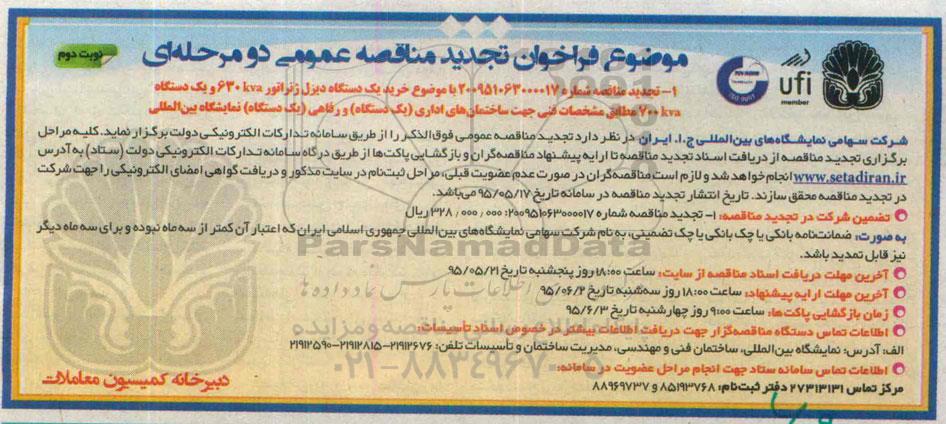 موضوع فراخوان تجدید مناقصه عمومی دو مرحله‌ای
نوبت دوم
ufi
member
۱- تجدید مناقصه شماره ۲۰۰۹۵۱۰۶۳۰۰۰۰۱۷ با موضوع خرید یک دستگاه دیزل ژنراتور ۶۳۰ kva و یک دستگاه
۷۰ kva مطابق مشخصات فنی جهت ساختمان‌های اداری (یک دستگاه) و رفاهی (یک دستگاه) نمایشگاه بین‌المللی
شرکت سهامی نمایشگاه‌های بین‌المللی ج.ا. ایران در نظر دارد تجدید مناقصه عمومی فوق‌الذکر را از طریق سامانه تدارکات الکترونیکی دولت برگزار نماید. کلیه مراحل
برگزاری تجدید مناقصه از دریافت اسناد تجدید مناقصه تا ارایه پیشنهاد مناقصه‌گران و بازگشایی پاکت‌ها از طریق درگاه سامانه تدارکات الکترونیکی دولت (ستاد) به آدرس
www.setadiran.ir انجام خواهد شد و لازم است مناقصه‌گران در صورت عدم عضویت قبلی، مراحل ثبت‌نام در سایت مذکور و دریافت گواهی امضای الکترونیکی را جهت شرکت
در تجدید مناقصه محقق سازند. تاریخ انتشار تجدید مناقصه در سامانه تاریخ ۹۵/۰۵/۱۷ می‌باشد.
تضمین شرکت در تجدید مناقصه: ۱- تجدید مناقصه شماره ۲۰۰۹۵۱۰۶۳۰۰۰۰۱۷: ۳۲۸٫۰۰۰٫۰۰۰ ریال
به صورت: ضمانت‌نامه بانکی یا چک بانکی یا چک تضمینی، به نام شرکت سهامی نمایشگاه‌های بین‌المللی جمهوری اسلامی ایران که اعتبار آن کمتر از سه ماه نبوده و برای سه ماه دیگر
نیز قابل تمدید باشد.
ParsNamadData
آخرین مهلت دریافت اسناد مناقصه از سایت: ساعت ۱۸:۰۰ روز پنجشنبه تاریخ ۹۵/۰۵/۲۱
آخرین مهلت ارایه پیشنهاد: ساعت ۱۸:۰۰ روز سه‌شنبه تاریخ ۹۵/۰۶/۲
زمان بازگشایی پاکت‌ها: ساعت ۹:۰۰ روز چهارشنبه تاریخ ۹۵/۶/۳
اطلاعات تماس دستگاه مناقصه‌گزار جهت دریافت اطلاعات بیشتر در خصوص اسناد تاسیسات:
الف: آدرس: نمایشگاه بین‌المللی، ساختمان فنی و مهندسی، مدیریت ساختمان و تأسیسات تلفن: ۲۱۹۱۲۶۷۶-۲۱۹۱۲۸۱۵-۲۱۹۱۲۵۹۰
۰۲۱-۸۸۳۴۹۶۷۰-۵
اطلاعات تماس سامانه ستاد جهت انجام مراحل عضویت در سامانه:
مرکز تماس ۲۷۳۱۳۱۳۱ دفتر ثبت‌نام: ۸۵۱۹۳۷۶۸ و ۸۸۹۶۹۷۳۷
دبیرخانه کمیسیون معاملات